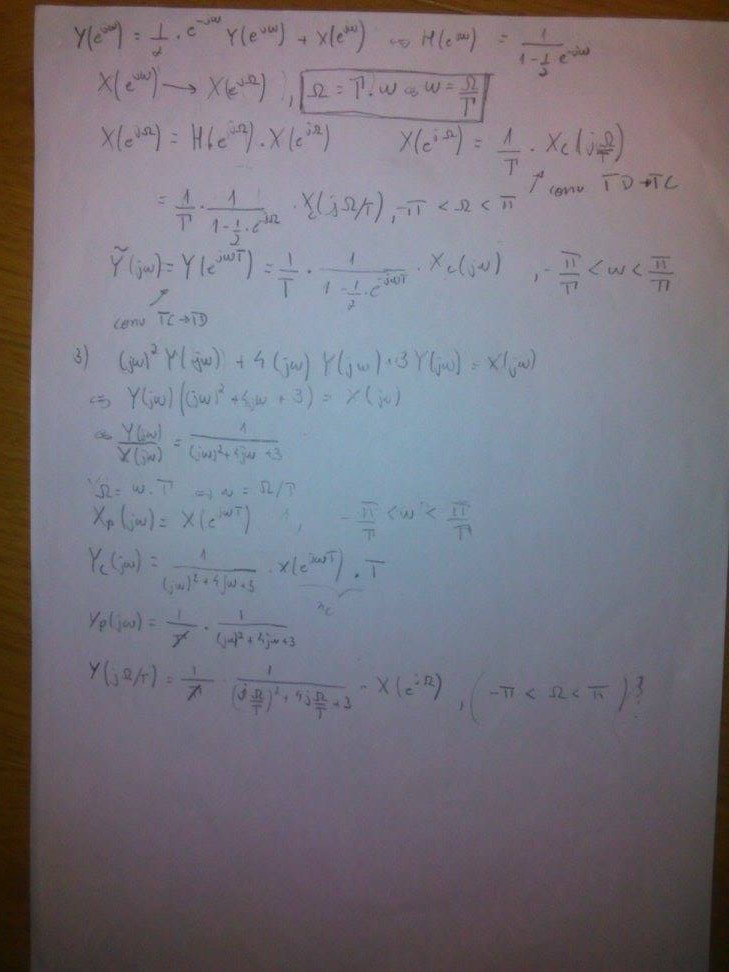 Y(e^{jω}) = 1/2 · e^{-jω} Y(e^{jω}) + X(e^{jω}) ⇔ H(e^{jω}) = 1/(1-1/2 e^{-jω})
X(e^{jω}) → X(e^{jΩ}), Ω = T·ω ⇔ ω = Ω/T
X(e^{jΩ}) = H(e^{jΩ})·X(e^{jΩ}) X(e^{jΩ}) = 1/T · X_c(jΩ/T)
↗ conv TD→TC
= 1/T · 1/(1-1/2·e^{-jΩ}) · X_c(jΩ/T), -π < Ω < π
Ỹ(jω) = Y(e^{jωT}) = 1/T · 1/(1-1/2·e^{-jωT}) · X_c(jω), -π/T < ω < π/T
↗
conv TC→TD
3) (jω)² Y(jω) + 4(jω) Y(jω) + 3Y(jω) = X(jω)
⇔ Y(jω)((jω)² + 4jω + 3) = X(jω)
⇔ Y(jω)/X(jω) = 1/((jω)²+4jω+3)
Ω = ω.T ⇔ ω = Ω/T
X_p(jω) = X(e^{jωT}), -π/T < ω < π/T
Y_c(jω) = 1/((jω)²+4jω+3) · X(e^{jωT}) . T
x_c
Y_p(jω) = 1/T · 1/((jω)²+4jω+3)
Y(jΩ/T) = 1/T · 1/((jΩ/T)²+4jΩ/T+3) - X(e^{jΩ}), (-π < Ω < π)?